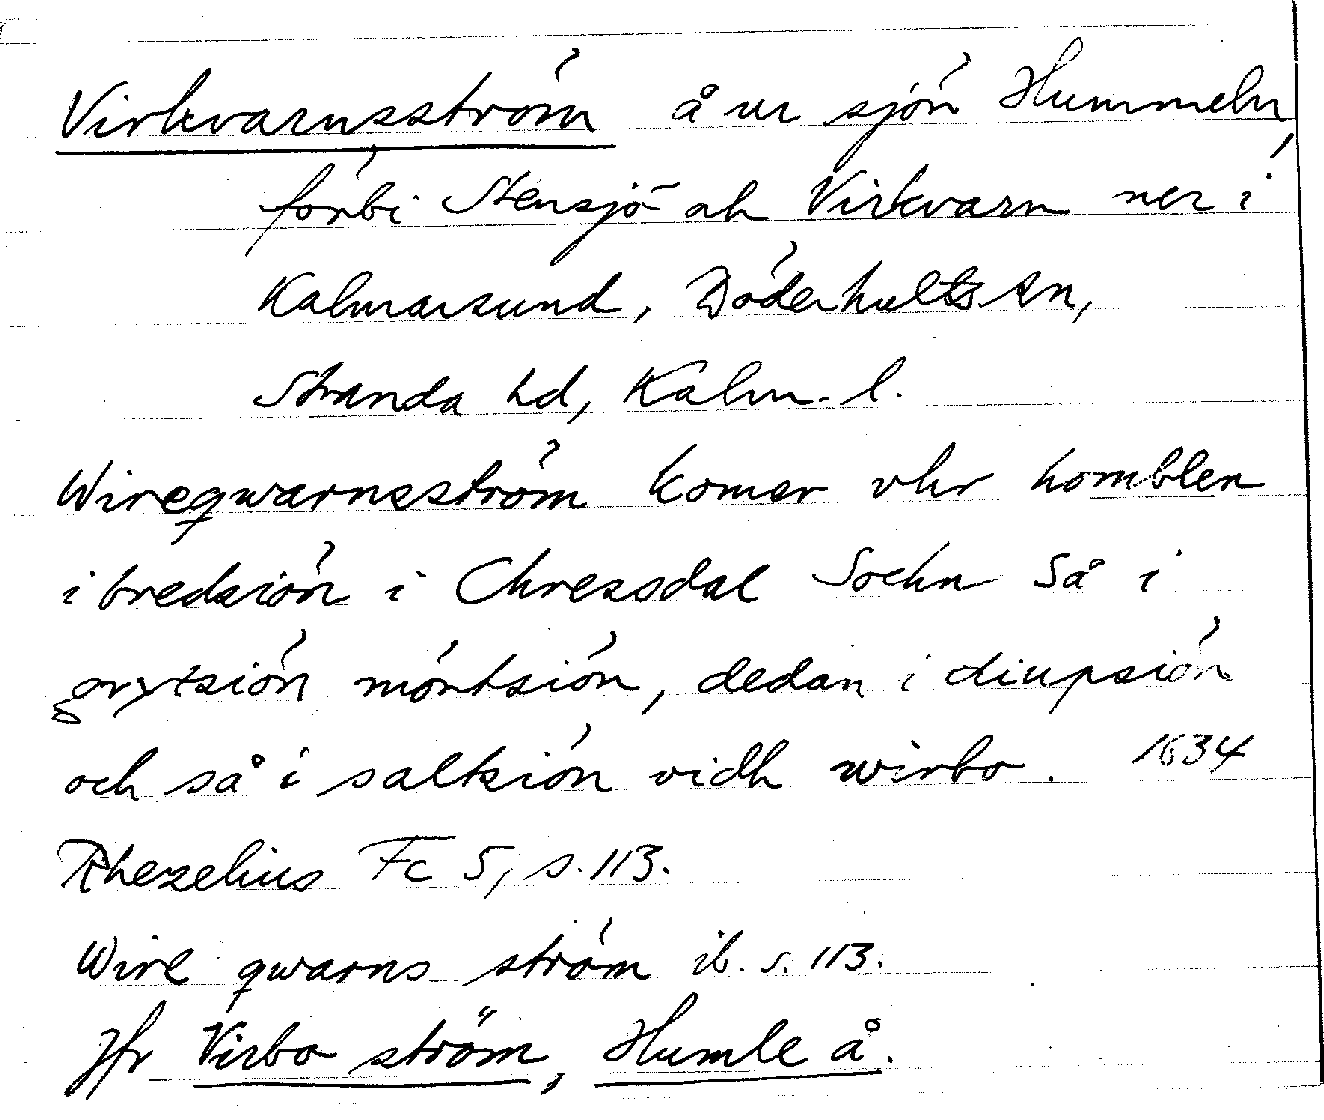 Virkvarnsström å ur sjön Hummeln,
förbi Stensjö och Virkvarn ner i
Kalmarsund, Döderhults sn,
Stranda hd, Kalm. l.
Wireqwarnsström komer vhr homblen
i bredsiön i Chressdal Sochn Så i
grytsiön möntsiön, dedan i diupsiön
och så i saltsiön vidh wirbo. 1634
Rhezelius Fc 5, s. 113.
Wire qwarns ström ib. s. 113.
Jfr Virbo ström, Humle å.